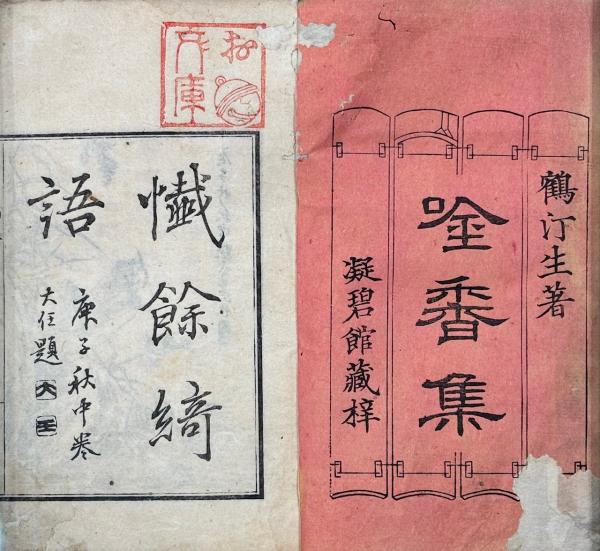 鶴汀生著
唫香集
凝碧館藏梓
懺餘綺
語
庚子秋中
大任題